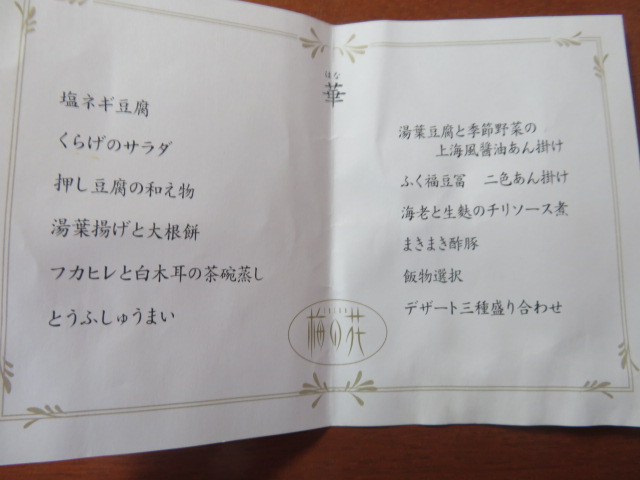 はな
華
塩ネギ豆腐
くらげのサラダ
押し豆腐の和え物
湯葉揚げと大根餅
フカヒレと白木耳の茶碗蒸し
とうふしゅうまい
湯葉豆腐と季節野菜の
上海風醤油あん掛け
ふく福豆冨　二色あん掛け
海老と生麩のチリソース煮
まきまき酢豚
飯物選択
デザート三種盛り合わせ
梅の花